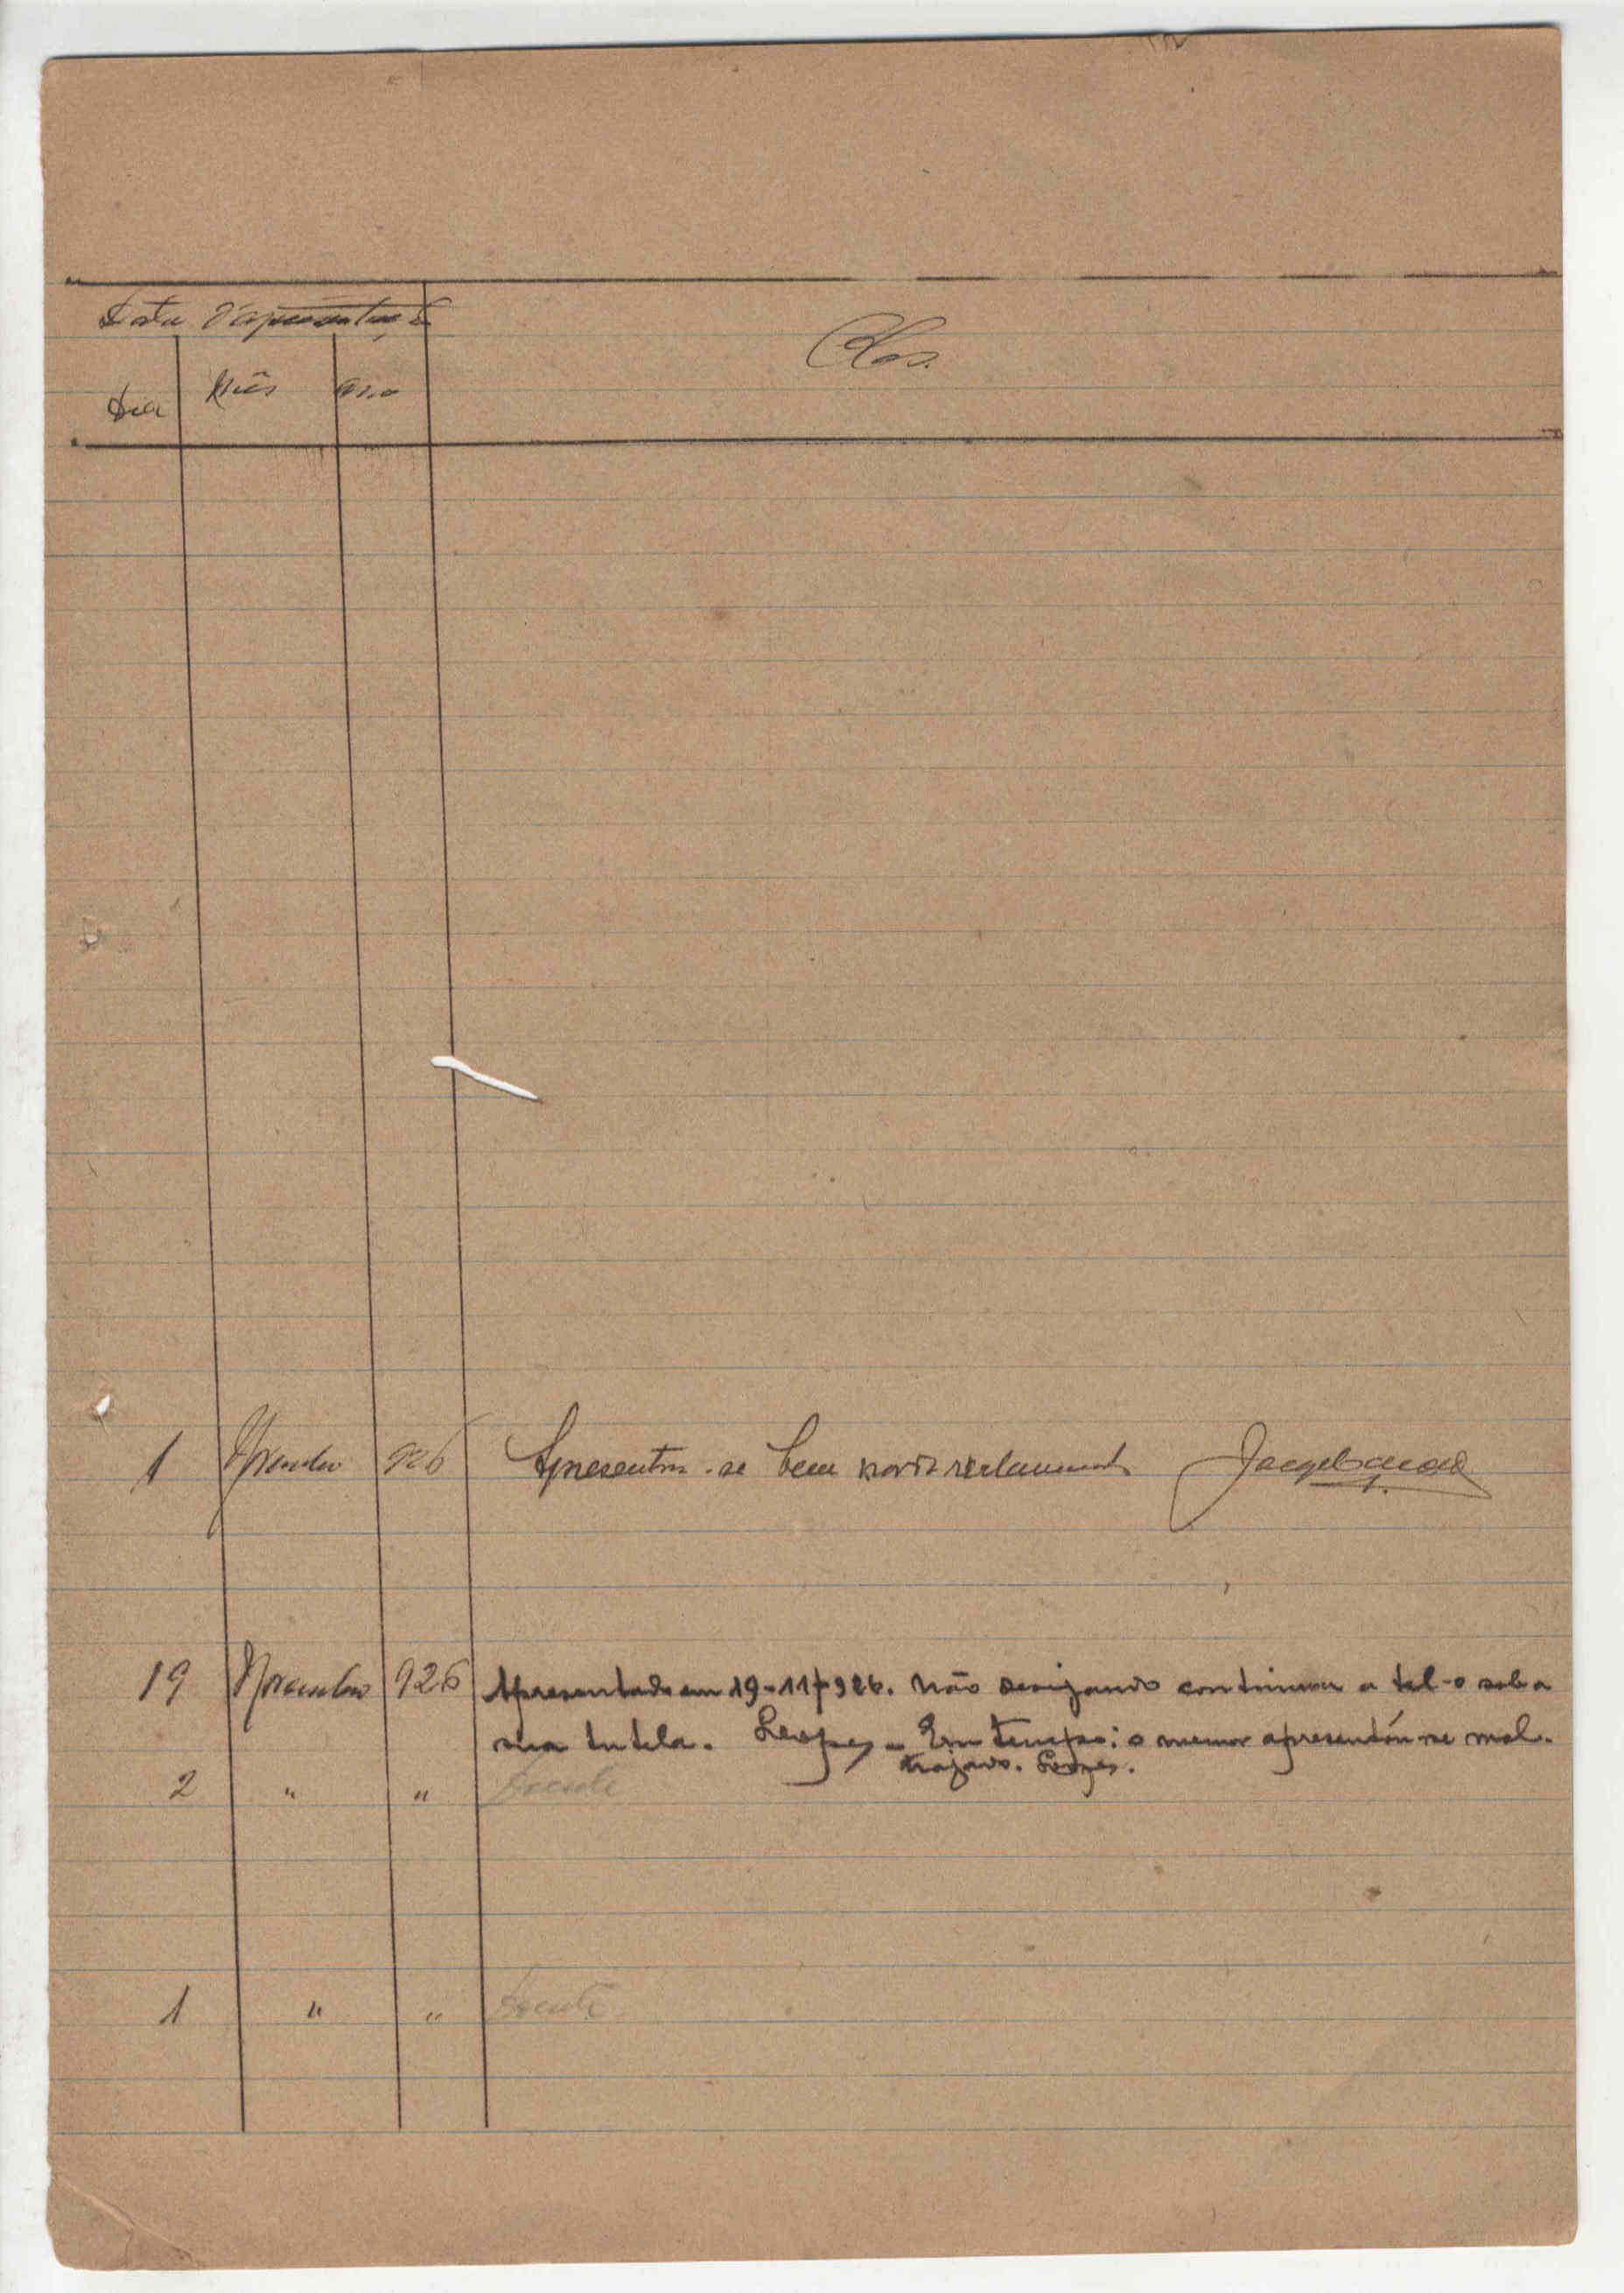 Data d'apresentação
Dia Mês Ano Obs.
1 Novembro 926 Apresentou-se bem
19 Novembro 926 Apresentado em 19-11-926. Não desejando continuar a tel-o sob a
sua tutela. Lopes - Em tempo: o menor apresentou-se mal
trajado. Lopes.
2 " " Doente
1 " " Doente